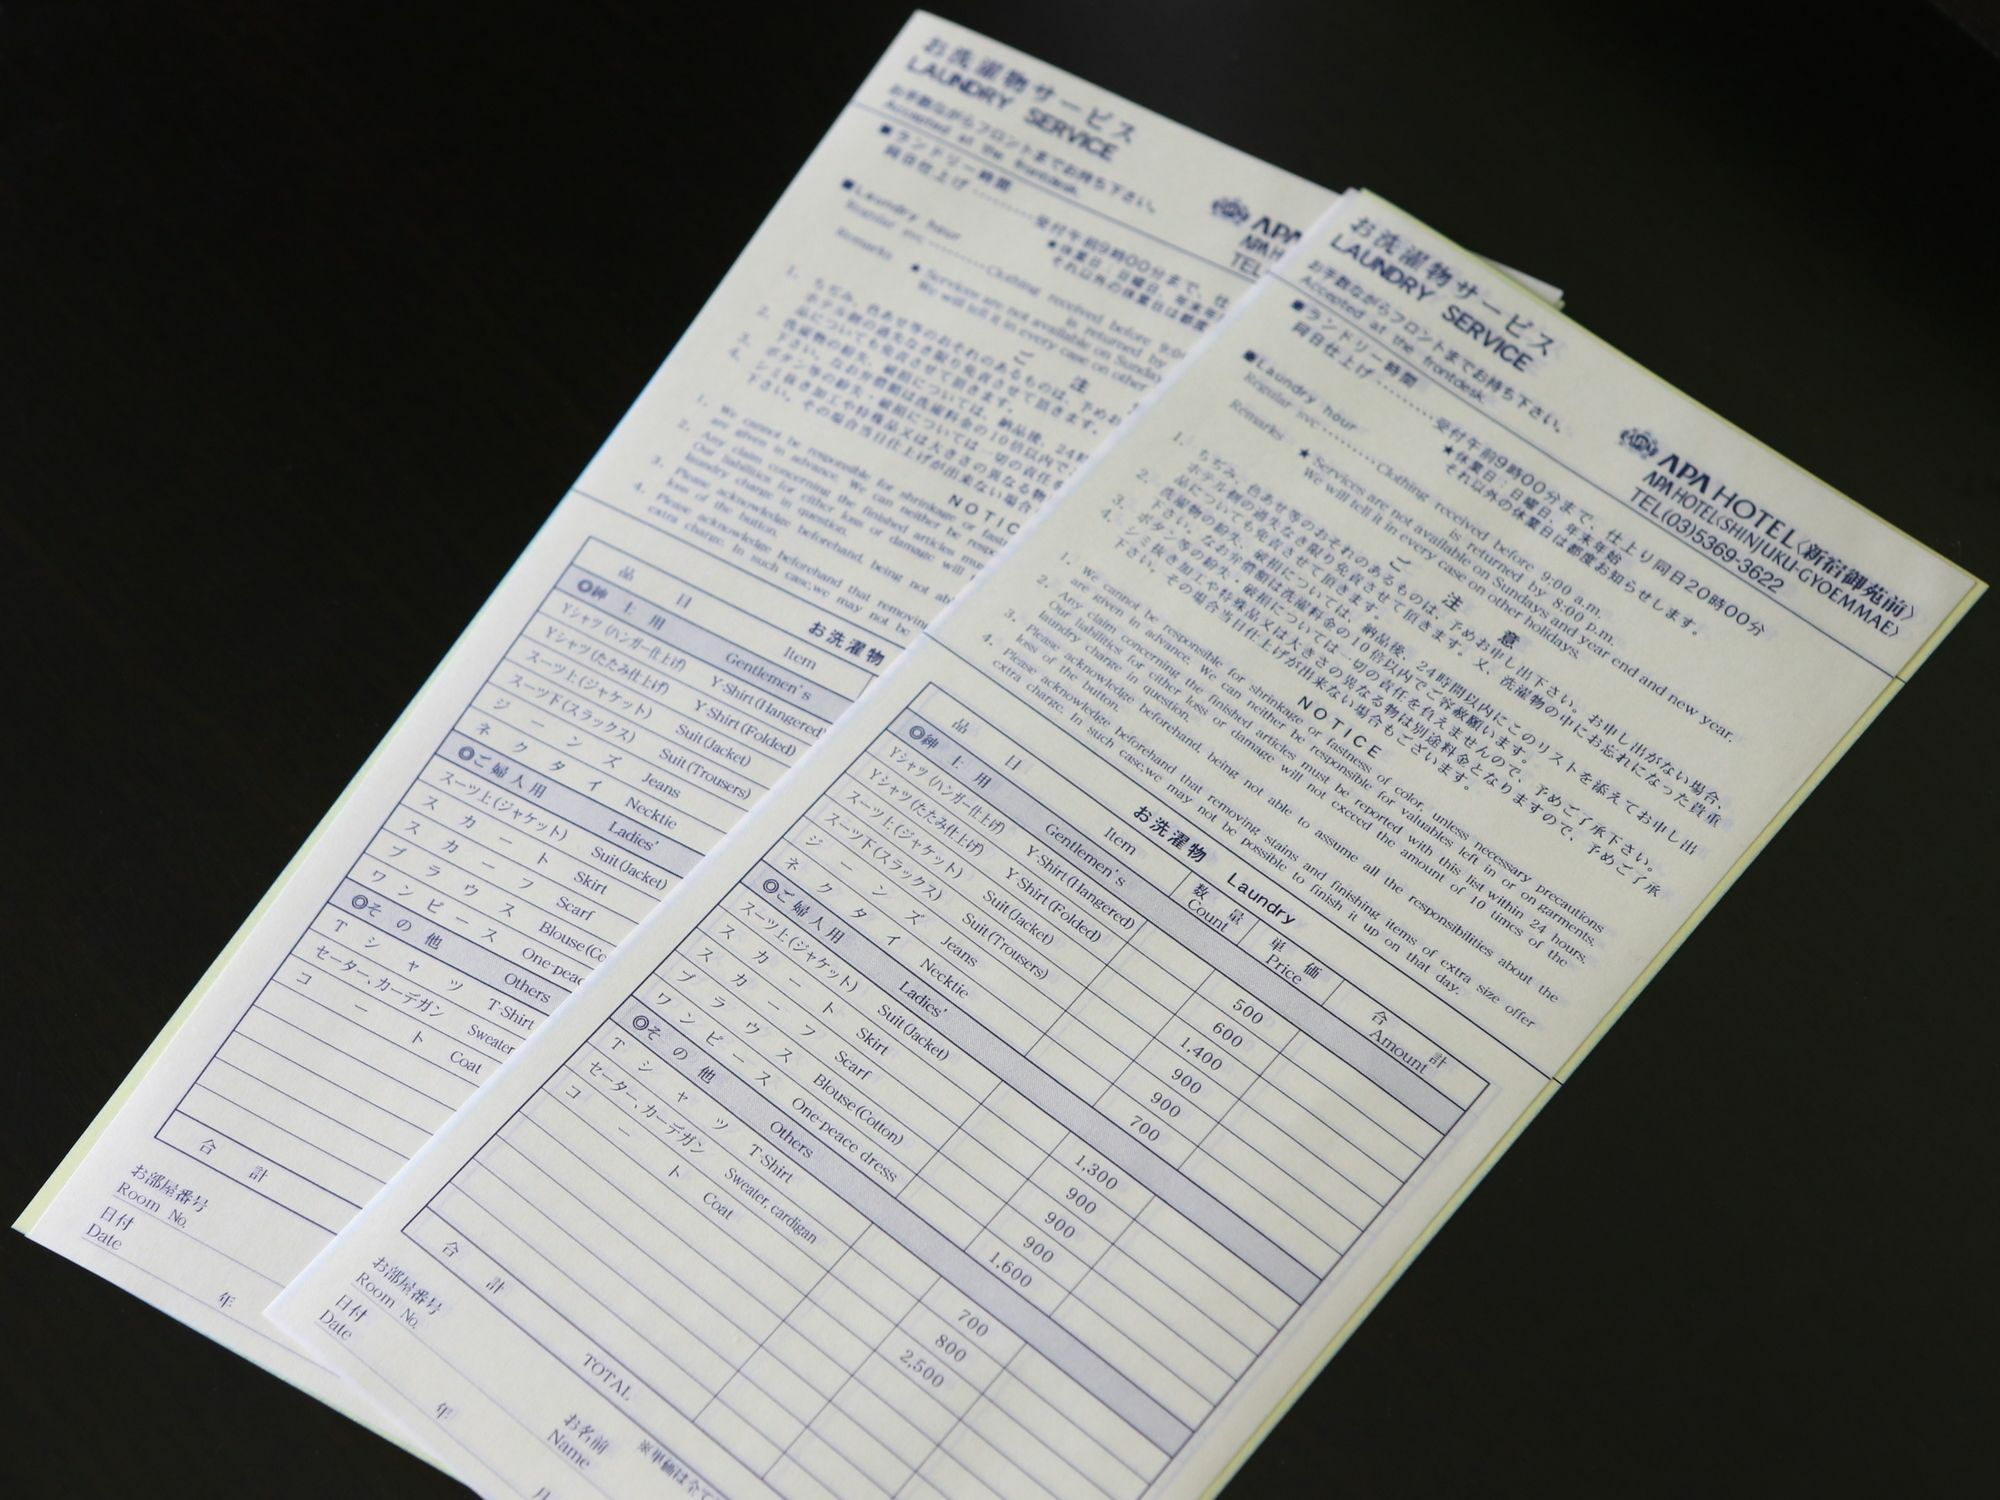 お洗濯物サービス
LAUNDRY SERVICE
お手数ながらフロントまでお持ち下さい。
Accepted at the frontdesk.
APA
APA H
TEL
■ランドリー時間
同日仕上げ………受付午前9時00分まで、仕
★休業日:日曜日、年末年
それ以外の休業日は都度
■Laundry hour
Regular svc.………Clothing received before 9:0
is returned by
Remarks ★Services are not available on Sunday
We will tell it in every case on other
ご 注
1. ちぢみ、色あせ等のおそれのあるものは、予めお
ホテル側の過失なき限り免責させて頂きます。
品についても免責させて頂きます。
2. 洗濯物の紛失、破損については、納品後、24時
下さい。なお弁償額は洗濯料金の10倍以内で
3. ボタン等の紛失・破損については一切の責任を
4. シミ抜き加工や特殊品又は大きさの異なる物
下さい。その場合当日仕上げが出来ない場合
NOTIC
1. We cannot be responsible for shrinkage or fastn
are given in advance. We can neither be respo
2. Any claim concerning the finished articles mus
Our liabilities for either loss or damage will
laundry charge in question.
3. Please acknowledge beforehand, being not ab
loss of the button.
4. Please acknowledge beforehand that removing
extra charge. In such case,we may not be
お洗濯物
品 目 Item
◎紳士用 Gentlemen's
Yシャツ(ハンガー仕上げ) Y-Shirt(Hangered)
Yシャツ(たたみ仕上げ) Y-Shirt(Folded)
スーツ上(ジャケット) Suit(Jacket)
スーツ下(スラックス) Suit(Trousers)
ジーンズ Jeans
ネクタイ Necktie
◎ご婦人用 Ladies'
スーツ上(ジャケット) Suit(Jacket)
スカート Skirt
スカーフ Scarf
ブラウス Blouse(Co
ワンピース One-peac
◎その他 Others
Tシャツ T-Shirt
セーター、カーデガン Sweater
コート Coat
合 計
お部屋番号
Room No.
日付
Date
年
お洗濯物サービス
LAUNDRY SERVICE
お手数ながらフロントまでお持ち下さい。
Accepted at the frontdesk.
APA HOTEL〈新宿御苑前〉
APA HOTEL〈SHINJUKU-GYOEMMAE〉
TEL(03)5369-3622
■ランドリー時間
同日仕上げ………受付午前9時00分まで、仕上り同日20時00分
★休業日:日曜日、年末年始
それ以外の休業日は都度お知らせします。
■Laundry hour
Regular svc.………Clothing received before 9:00 a.m.
is returned by 8:00 p.m.
Remarks ★Services are not available on Sundays and year end and new year.
We will tell it in every case on other holidays.
ご 注 意
1. ちぢみ、色あせ等のおそれのあるものは、予めお申し出下さい。お申し出がない場合、
ホテル側の過失なき限り免責させて頂きます。又、洗濯物の中にお忘れになった貴重
品についても免責させて頂きます。
2. 洗濯物の紛失、破損については、納品後、24時間以内にこのリストを添えてお申し出
下さい。なお弁償額は洗濯料金の10倍以内でご容赦願います。
3. ボタン等の紛失・破損については一切の責任を負えませんので、予めご了承下さい。
4. シミ抜き加工や特殊品又は大きさの異なる物は別途料金となりますので、予めご了承
下さい。その場合当日仕上げが出来ない場合もございます。
NOTICE
1. We cannot be responsible for shrinkage or fastness of color, unless necessary precautions
are given in advance. We can neither be responsible for valuables left in or on garments.
2. Any claim concerning the finished articles must be reported with this list within 24 hours.
Our liabilities for either loss or damage will not exceed the amount of 10 times of the
laundry charge in question.
3. Please acknowledge beforehand, being not able to assume all the responsibilities about the
loss of the button.
4. Please acknowledge beforehand that removing stains and finishing items of extra size offer
extra charge. In such case,we may not be possible to finish it up on that day.
お洗濯物 Laundry
品 目 Item 数量 Count 単価 Price 合計 Amount
◎紳士用 Gentlemen's
Yシャツ(ハンガー仕上げ) Y-Shirt(Hangered) 500
Yシャツ(たたみ仕上げ) Y-Shirt(Folded) 600
スーツ上(ジャケット) Suit(Jacket) 1,400
スーツ下(スラックス) Suit(Trousers) 900
ジーンズ Jeans 900
ネクタイ Necktie 700
◎ご婦人用 Ladies'
スーツ上(ジャケット) Suit(Jacket) 1,300
スカート Skirt 900
スカーフ Scarf 900
ブラウス Blouse(Cotton) 900
ワンピース One-peace dress 1,600
◎その他 Others
Tシャツ T-Shirt 700
セーター、カーデガン Sweater, cardigan 800
コート Coat 2,500
合 計 TOTAL
※単価は全て
お部屋番号
Room No.
お名前
Name
日付
Date
年 月